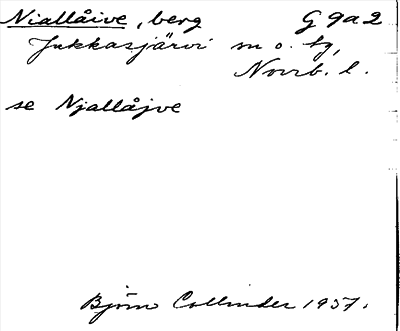 Niallåive, berg G 9a2
Jukkasjärvi sn o. tg,
Norrb. l.
se Njallåjve
Björn Collinder 1957.